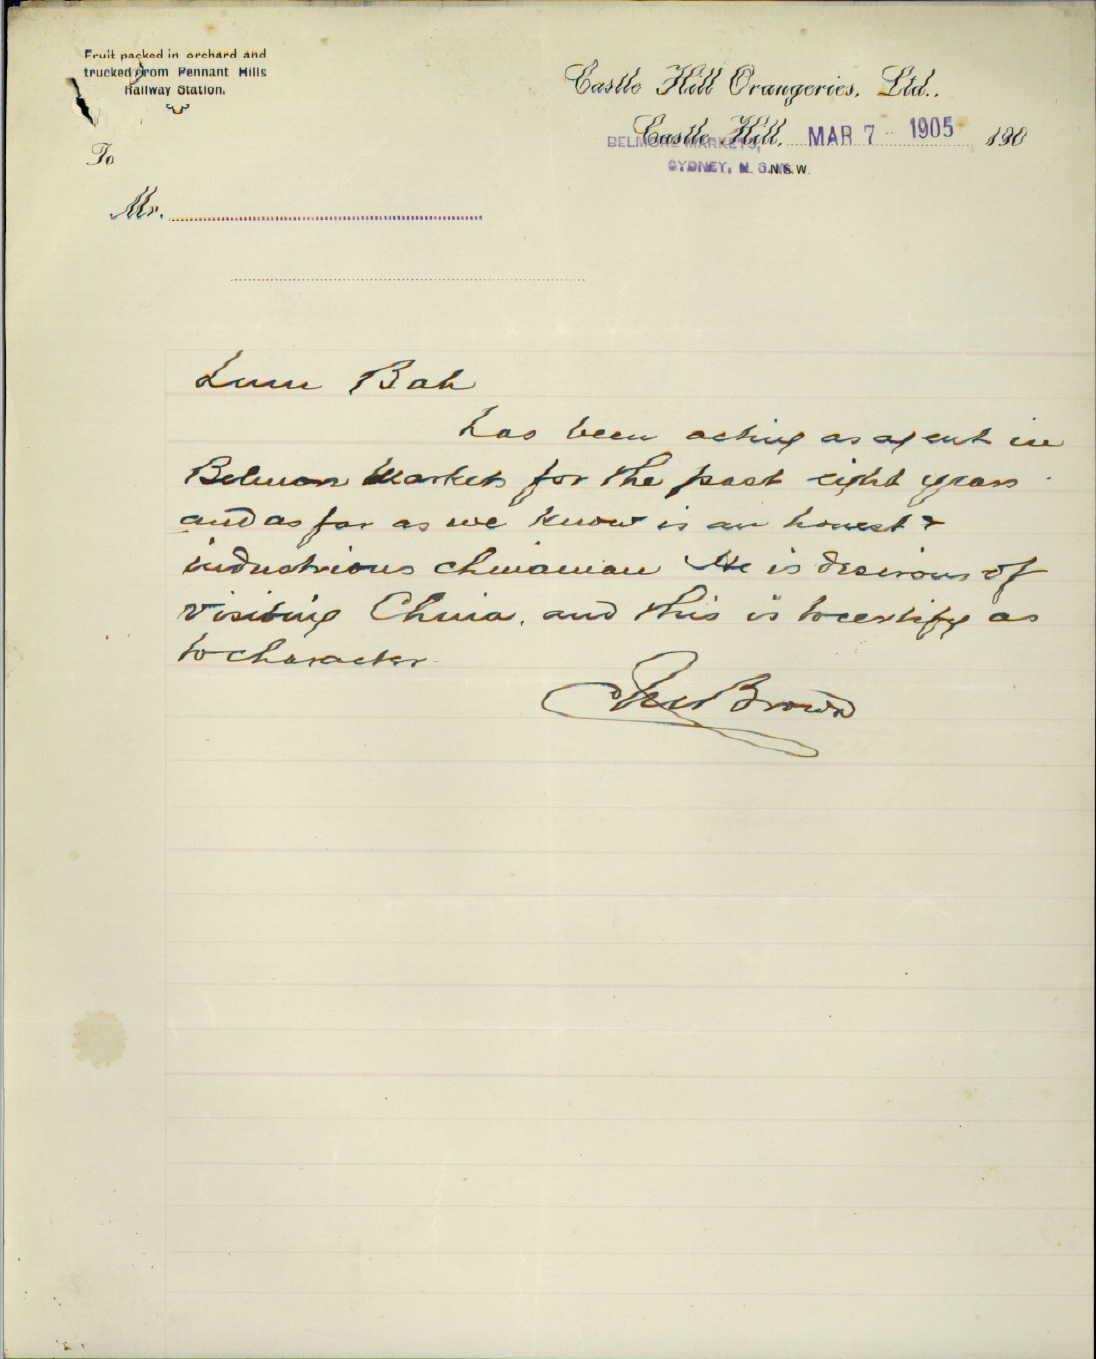 Fruit packed in orchard and
trucked from Pennant Hills
Railway Station.
Castle Hill Orangeries, Ltd.,
Castle Hill, MAR 7 - 1905 190
BELMORE MARKETS,
SYDNEY, N. S. W.
N.S.W.
To
Mr.
Lum Bah
has been acting as agent in
Belmore Markets for the past eight years
and as far as we know is an honest &
industrious chinaman He is desirous of
visiting China, and this is to certify as
to character.
Brown